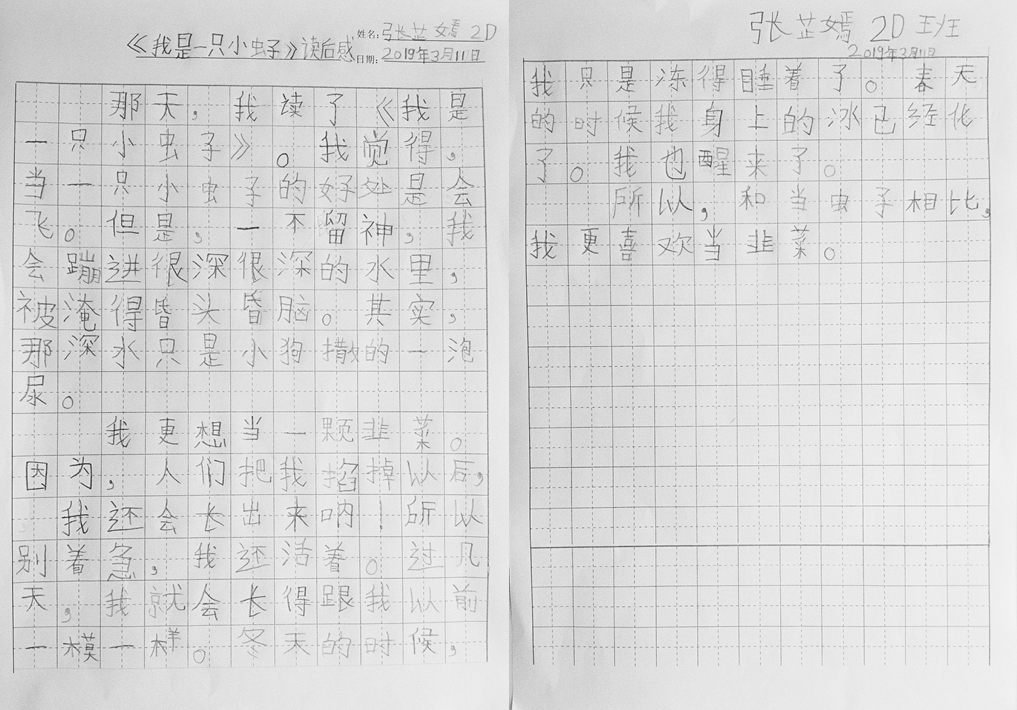 《我是一只小虫子》读后感
姓名：张芷嫣 2D
日期：2019年3月11日
那天，我读了《我是
一只小虫子》。我觉得，
当一只小虫子的好处是会
飞。但是，一不留神，我
会蹦进很深很深的水里，
被淹得昏头昏脑。其实，
那深水只是小狗撒的一泡
尿。
我更想当一颗韭菜。
因为，人们把我掐掉以后，
我还会长出来呐！所以
别着急，我还活着。过几
天，我就会长得跟我以前
一模一样。冬天的时候，
张芷嫣 2D 班
2019年3月11日
我只是冻得睡着了。春天
的时候我身上的冰已经化
了。我也醒来了。
所以，和当虫子相比，
我更喜欢当韭菜。